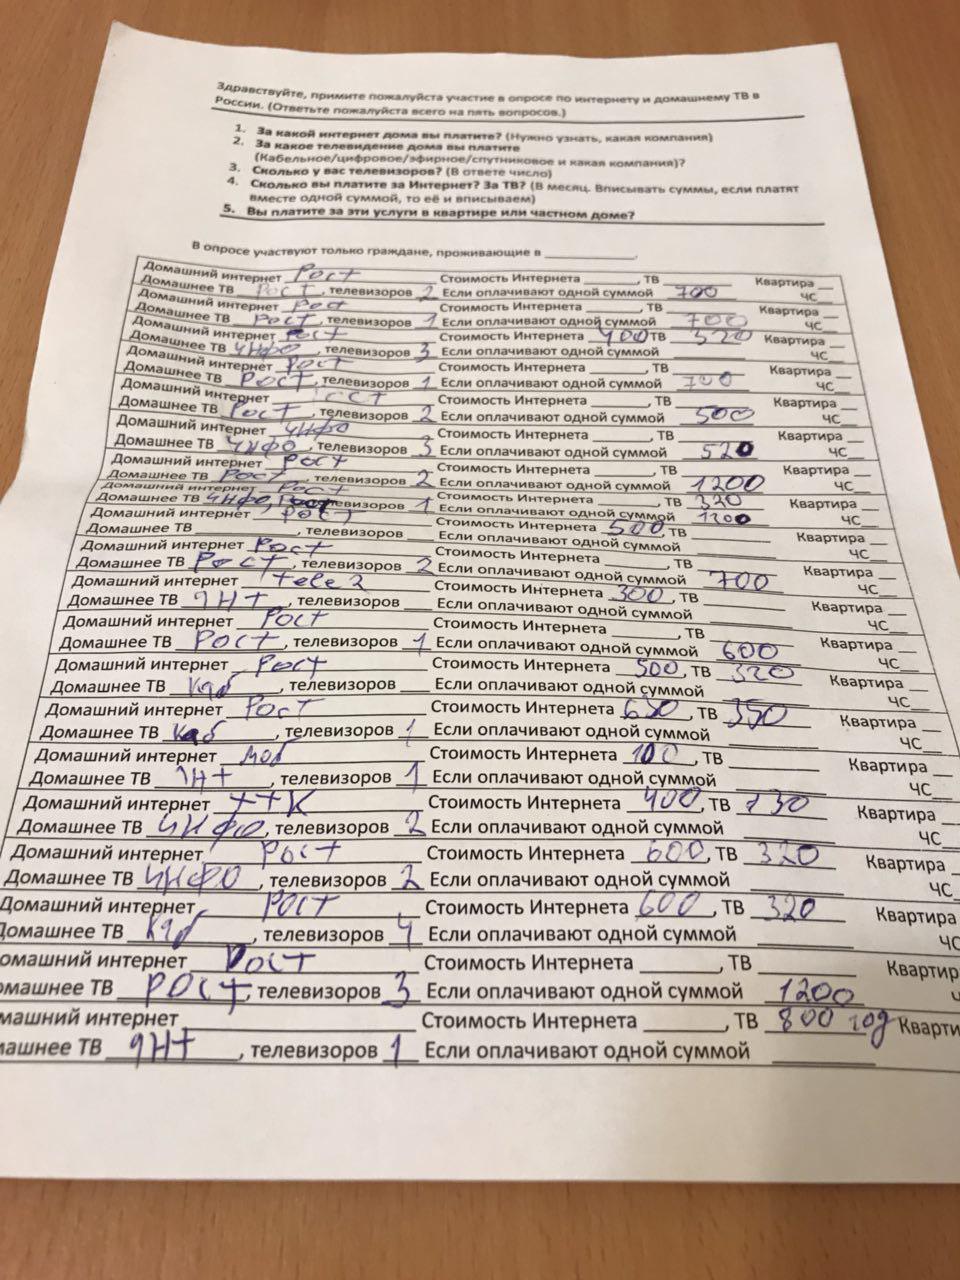 Здравствуйте, примите пожалуйста участие в опросе по интернету и домашнему ТВ в
России. (Ответьте пожалуйста всего на пять вопросов.)
1. За какой интернет дома вы платите? (Нужно узнать, какая компания)
2. За какое телевидение дома вы платите
(Кабельное/цифровое/эфирное/спутниковое и какая компания)?
3. Сколько у вас телевизоров? (В ответе число)
4. Сколько вы платите за Интернет? За ТВ? (В месяц. Вписывать суммы, если платят
вместе одной суммой, то её и вписываем)
5. Вы платите за эти услуги в квартире или частном доме?
В опросе участвуют только граждане, проживающие в ____________.
Домашний интернет Рост Стоимость Интернета ______, ТВ ______ Квартира __
Домашнее ТВ Рост, телевизоров 2 Если оплачивают одной суммой 700 ЧС__
Домашний интернет Рост Стоимость Интернета ______, ТВ ______ Квартира __
Домашнее ТВ Рост, телевизоров 1 Если оплачивают одной суммой 700 ЧС__
Домашний интернет Рост Стоимость Интернета 400 ТВ 520 Квартира __
Домашнее ТВ ЧНФО, телевизоров 3 Если оплачивают одной суммой ______ ЧС__
Домашний интернет Рост Стоимость Интернета ______, ТВ ______ Квартира __
Домашнее ТВ Рост, телевизоров 1 Если оплачивают одной суммой 700 ЧС__
Домашний интернет Стоимость Интернета ______, ТВ ______ Квартира __
Домашнее ТВ Рост, телевизоров 2 Если оплачивают одной суммой 500 ЧС__
Домашний интернет ЧНФО Стоимость Интернета ______, ТВ ______ Квартира __
Домашнее ТВ ЧНФО, телевизоров 3 Если оплачивают одной суммой 520 ЧС__
Домашний интернет Рост Стоимость Интернета ______, ТВ ______ Квартира __
Домашнее ТВ Рост, телевизоров 2 Если оплачивают одной суммой 1200 ЧС__
Домашний интернет Рост Стоимость Интернета ______, ТВ 320 Квартира __
Домашнее ТВ ЧНФО, телевизоров 1 Если оплачивают одной суммой 1200 ЧС__
Домашний интернет Рост Стоимость Интернета 500, ТВ ______ Квартира __
Домашнее ТВ ______, телевизоров __ Если оплачивают одной суммой ______ ЧС__
Домашний интернет Рост Стоимость Интернета ______, ТВ ______ Квартира __
Домашнее ТВ Рост, телевизоров 2 Если оплачивают одной суммой 700 ЧС__
Домашний интернет tele2 Стоимость Интернета 300, ТВ ______ Квартира __
Домашнее ТВ ЧНТ, телевизоров __ Если оплачивают одной суммой ______ ЧС__
Домашний интернет Рост Стоимость Интернета ______, ТВ ______ Квартира __
Домашнее ТВ Рост, телевизоров 1 Если оплачивают одной суммой 600 ЧС__
Домашний интернет Рост Стоимость Интернета 500, ТВ 320 Квартира __
Домашнее ТВ Каб, телевизоров __ Если оплачивают одной суммой ______ ЧС__
Домашний интернет Рост Стоимость Интернета 650, ТВ 350 Квартира __
Домашнее ТВ Каб, телевизоров 1 Если оплачивают одной суммой ______ ЧС__
Домашний интернет моб Стоимость Интернета 100, ТВ ______ Квартира __
Домашнее ТВ ЧНТ, телевизоров 1 Если оплачивают одной суммой ______ ЧС__
Домашний интернет ТТК Стоимость Интернета 400, ТВ 130 Квартира __
Домашнее ТВ ЧНФО, телевизоров 2 Если оплачивают одной суммой ______ ЧС__
Домашний интернет Рост Стоимость Интернета 600, ТВ 320 Квартира
Домашнее ТВ ЧНФО, телевизоров 2 Если оплачивают одной суммой ______ ЧС
Домашний интернет Рост Стоимость Интернета 600, ТВ 320 Квартира
Домашнее ТВ Каб, телевизоров 4 Если оплачивают одной суммой ______ ЧС
омашний интернет Рост Стоимость Интернета ______, ТВ ______ Квартир
омашнее ТВ Рост, телевизоров 3 Если оплачивают одной суммой 1200
машний интернет ______ Стоимость Интернета ______, ТВ 800 год Кварти
машнее ТВ ЧНТ, телевизоров 1 Если оплачивают одной суммой ______